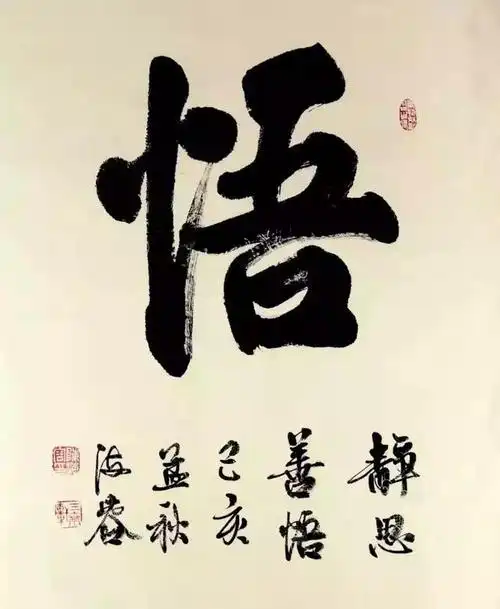 悟
靜思
善悟
己亥
孟秋
海